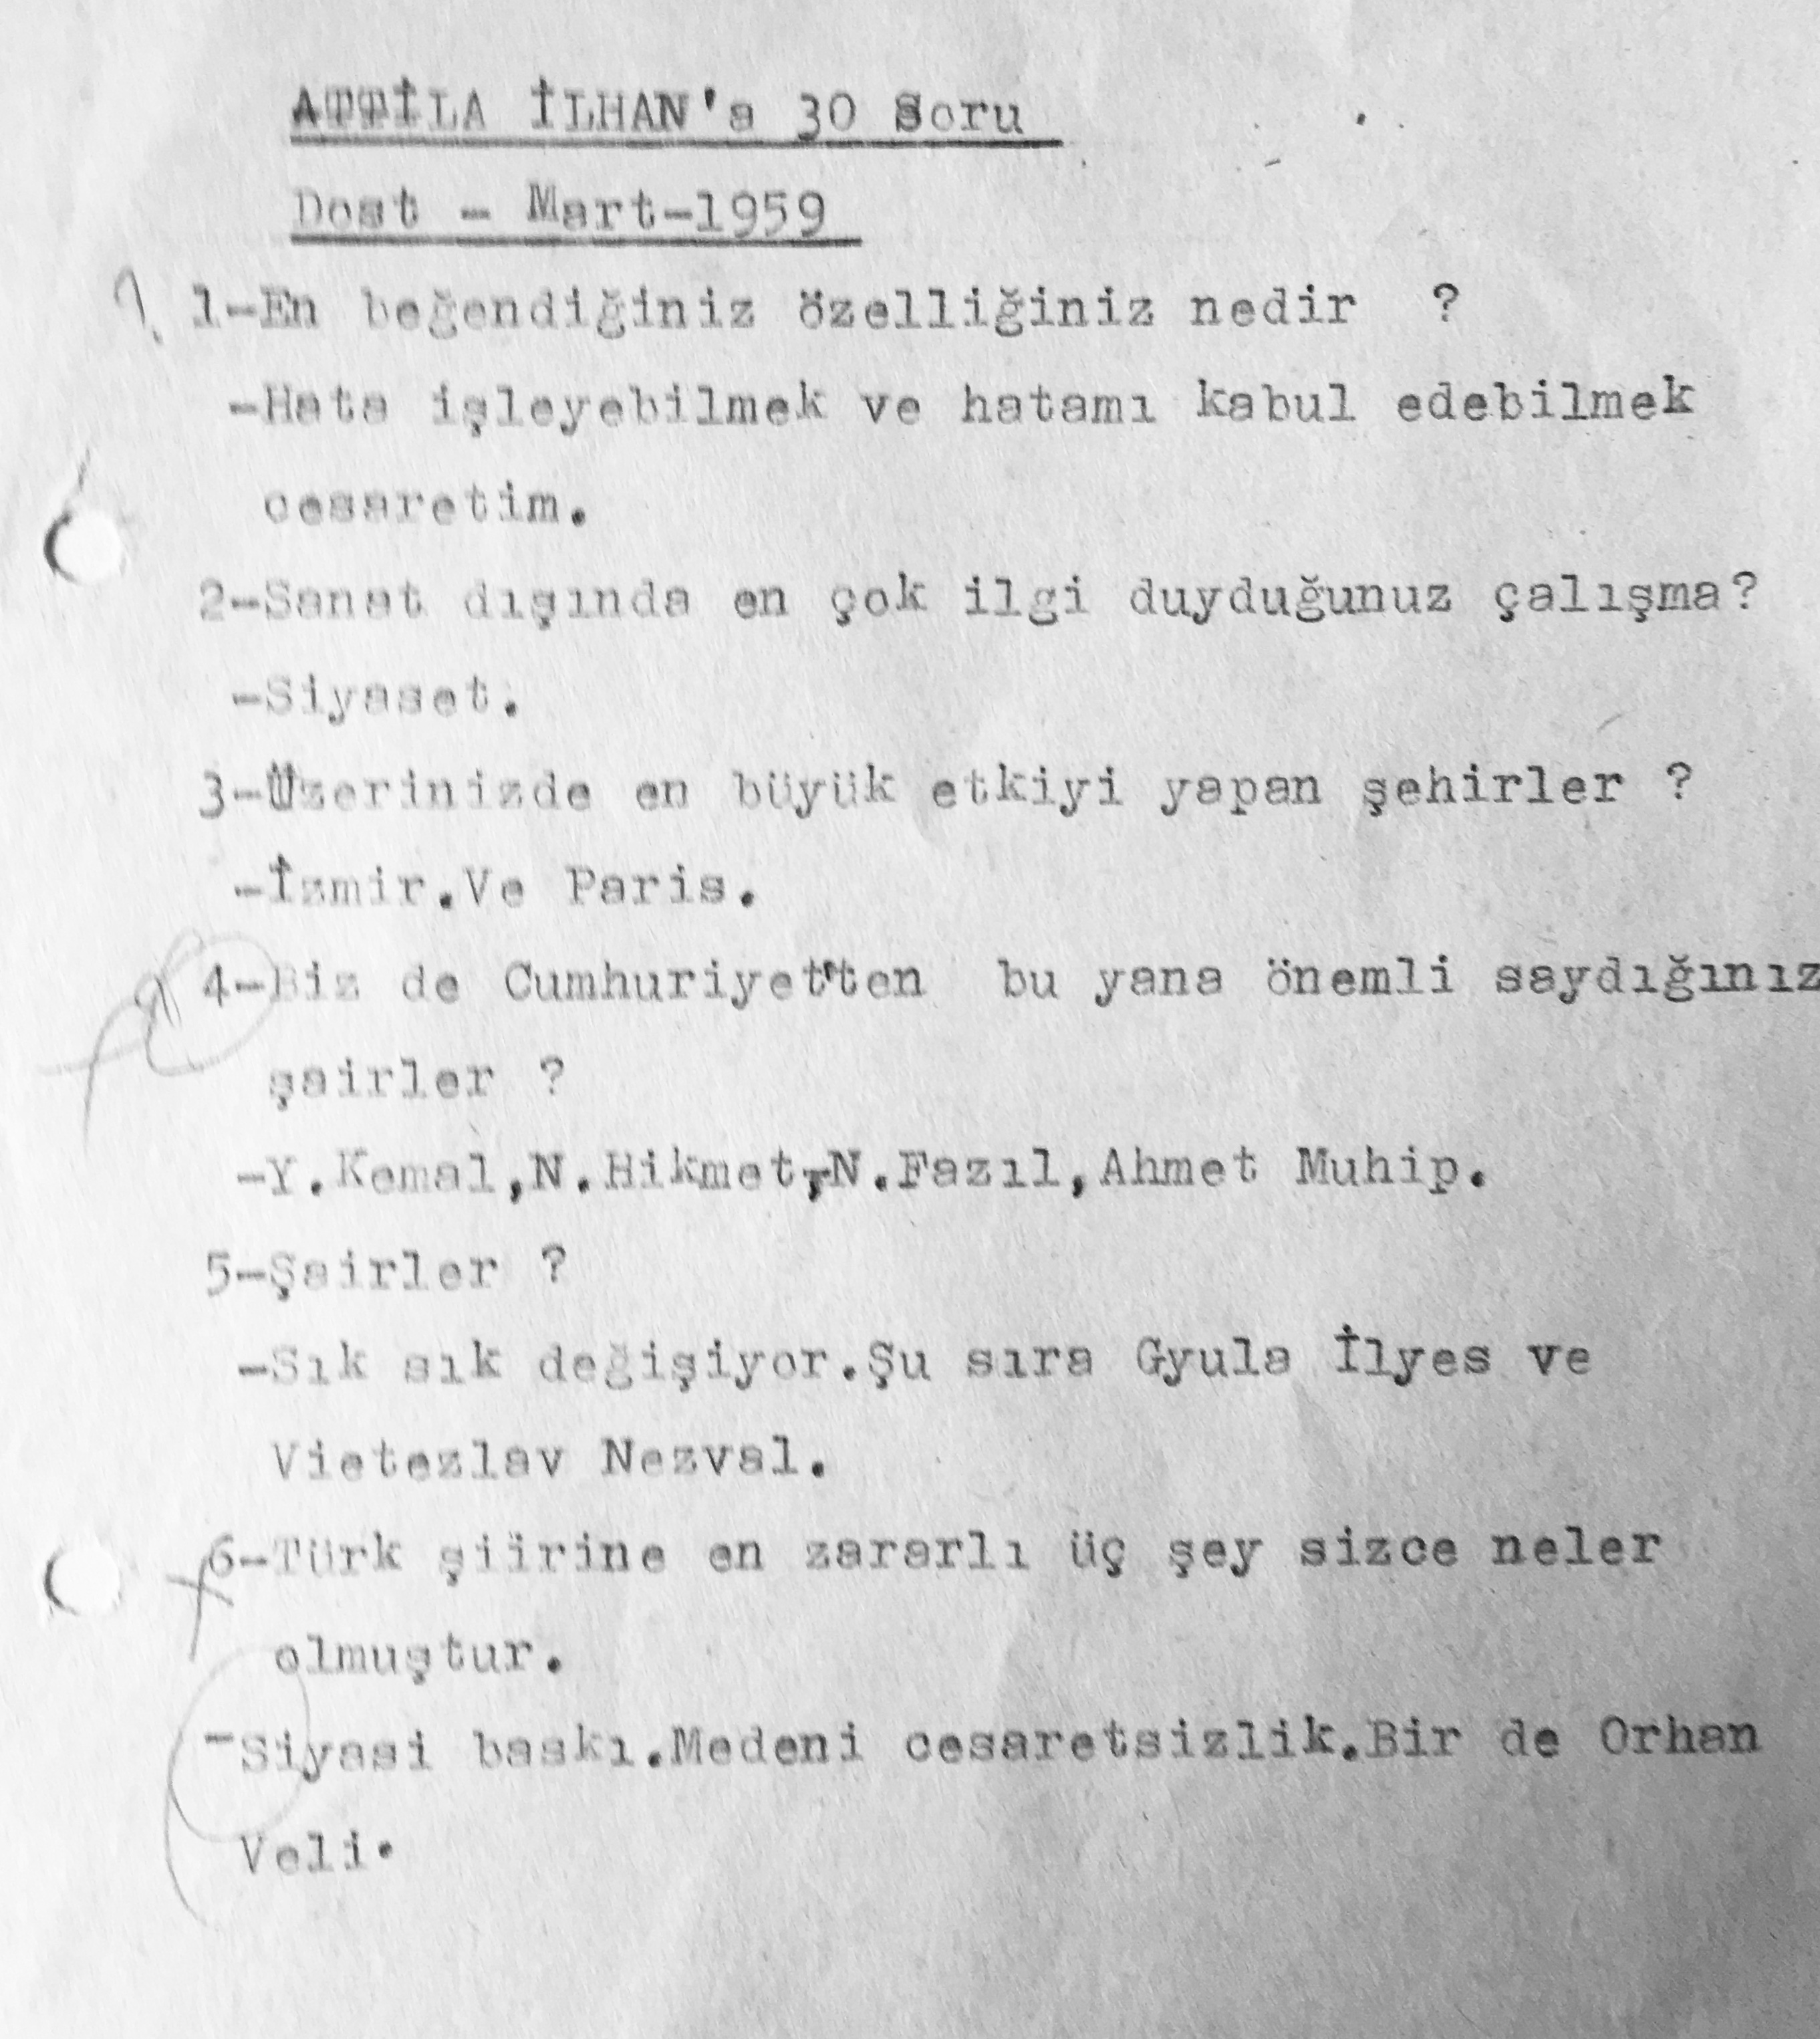 ATTİLA İLHAN'a 30 Soru
Dost - Mart-1959
1-En beğendiğiniz özelliğiniz nedir ?
-Hata işleyebilmek ve hatamı kabul edebilmek
cesaretim.
2-Sanat dışında en çok ilgi duyduğunuz çalışma?
-Siyaset.
3-Üzerinizde en büyük etkiyi yapan şehirler ?
-İzmir.Ve Paris.
4-Biz de Cumhuriyet'ten bu yana önemli saydığınız
şairler ?
-Y.Kemal,N.Hikmet,N.Fazıl,Ahmet Muhip.
5-Şairler ?
-Sık sık değişiyor.Şu sıra Gyula İlyes ve
Vietezlav Nezval.
6-Türk şiirine en zararlı üç şey sizce neler
olmuştur.
-Siyasi baskı.Medeni cesaretsizlik.Bir de Orhan
Veli.